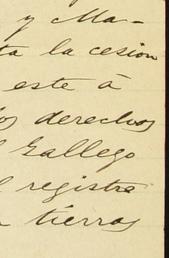 y Ma-
ta la cesion
este á
os derechos
l Gallego
l registra
a tierras